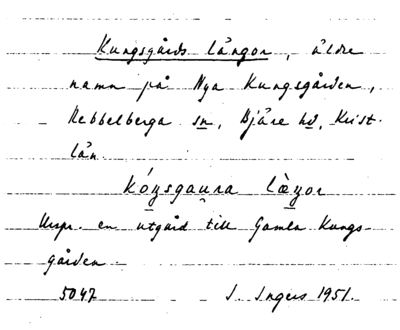 Kungsgårds längor, äldre
namn på Nya Kungsgården,
Rebbelberga sn, Bjäre hd, Krist.
län.
kóŋsgau̯ra læ̀ŋor
Urspr. en utgård till Gamla Kungs-
gården
5047 I. Ingers 1951.